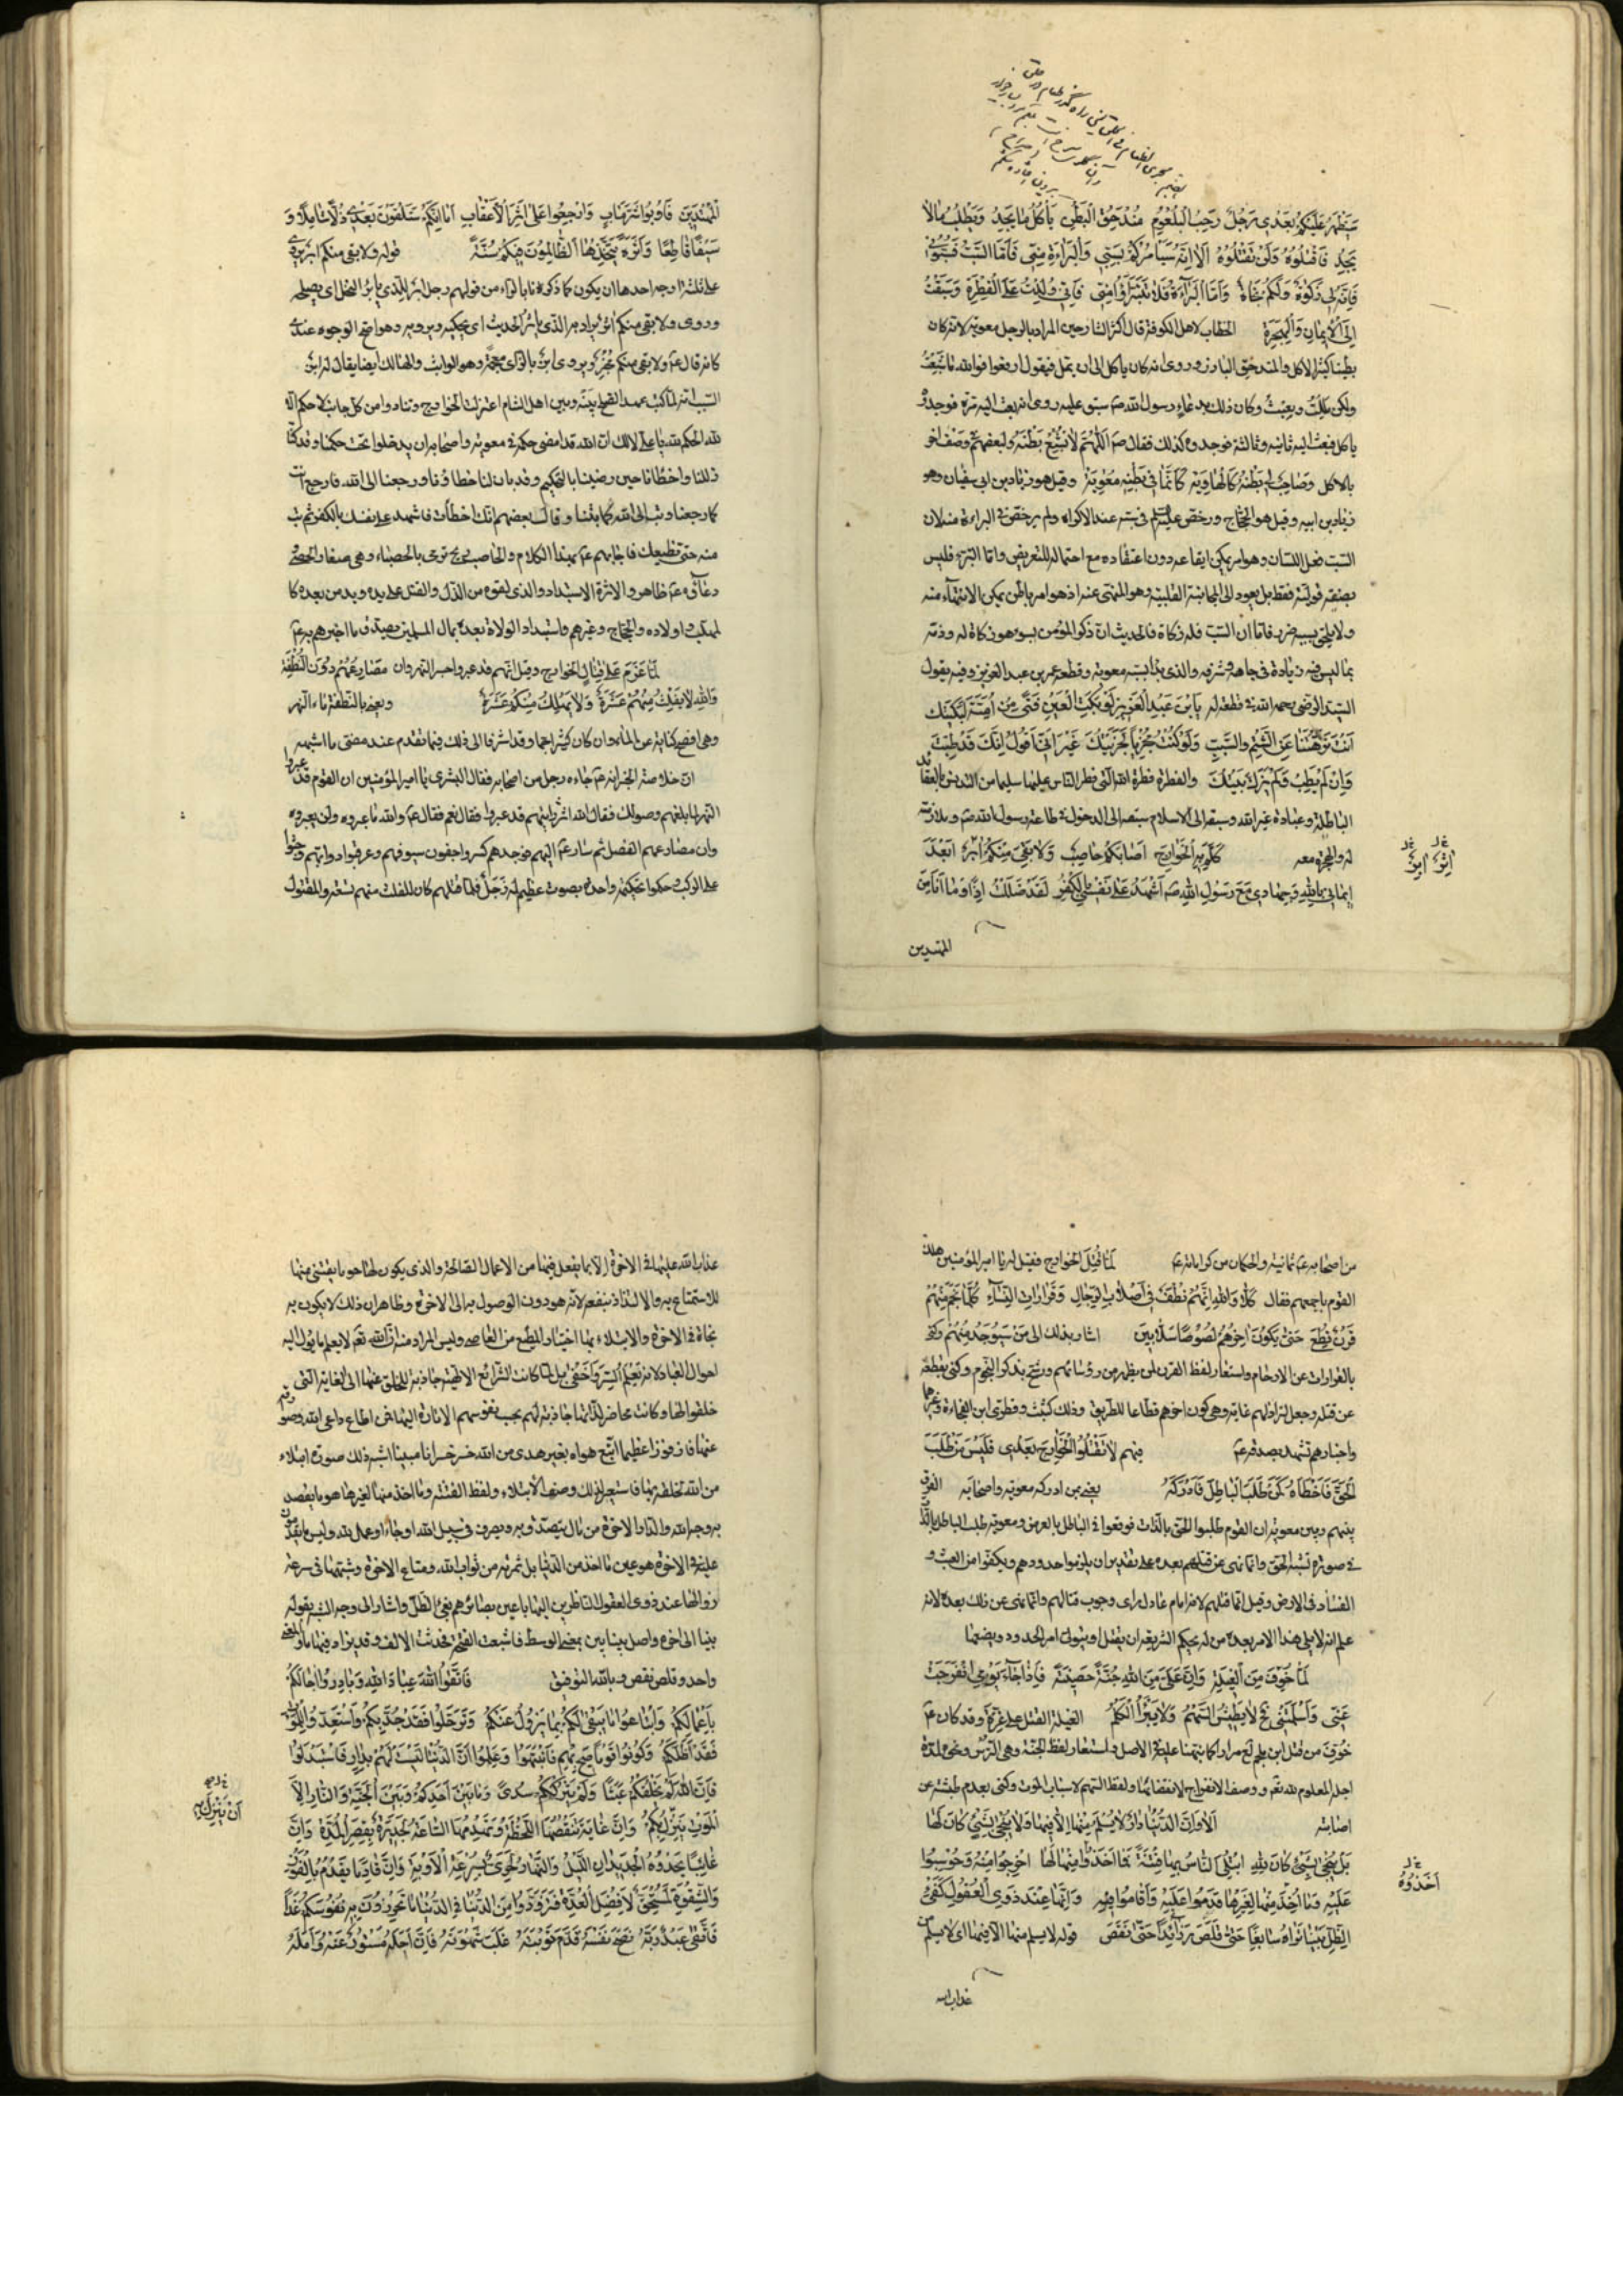 سَيَظْهَرُ عَلَيْكُمْ بَعْدِي رَجُلٌ رَحِبُ الْبُلْعُومِ مُنْدَحِقُ الْبَطْنِ يَأْكُلُ مَا يَجِدُ وَيَطْلُبُ مَا لَا
يَجِدُ فَاقْتُلُوهُ وَلَنْ تَقْتُلُوهُ أَلَا إِنَّهُ سَيَأْمُرُكُمْ بِسَبِّي وَالْبَرَاءَةِ مِنِّي فَأَمَّا السَّبُّ فَسُبُّونِي
فَإِنَّهُ لِي زَكٰوةٌ وَلَكُمْ نَجَاةٌ وَأَمَّا الْبَرَاءَةُ فَلَا تَتَبَرَّؤُا مِنِّي فَإِنِّي وُلِدْتُ عَلَى الْفِطْرَةِ وَسَبَقْتُ
إِلَى الْإِيمَانِ وَالْهِجْرَةِ الخطاب لاهل الكوفة قال اكثر الشارحين المراد بالرجل معوية لانه كان
بطينا كثير الاكل والمندحق البارز وروى انه كان ياكل الى ان يمل فيقول ارفعوا فوالله ما شَبِعْتُ
ولكن مَلِلْتُ وتعِبْتُ وكان ذلك بدعاء رسول الله صم سبق عليه روى انه بعث اليه مرة فوجدوه
ياكل فبعث اليه ثانية وثالثة فوجدوه كذلك فقال صم اَللّٰهُمَّ لَا تُشْبِعْ بَطْنَهُ ولبعضهم وصف اخر
بالاكل وَصَاحِبٍ لِي بَطْنُهُ كَالْهَاوِيَهْ كَأَنَّمَا فِي بَطْنِهِ مُعٰوِيَهْ وقيل هو زياد بن ابي سفيان وهو
زياد بن ابيه وقيل هو الحجاج ورخص عليه السلم في سبه عند الاكراه ولم يرخص في البراءة منه لان
السب فعل اللسان وهو امر يمكن ايقاعه دون اعتقاده مع احتماله للتعريض واما التبرء فليس
بصفة قولية فقط بل يعود الى المجانبة القلبية وهو المنهى عنه اذ هو امر باطن يمكن الانتهاء عنه
ولا يلحق بسببه ضرر فاما ان السب فله زكاة فالحديث ان ذكر المؤمن بسوء هو زكاة له وذمه
بما ليس فيه زيادة في جاهه وشرفه والذي بدا بسبه معوية وقطعه عمر بن عبد العزيز وفيه يقول
السيد الرضى رحمه الله في قطعه له يَا بْنَ عَبْدِ الْعَزِيزِ لَوْ بَكَتِ الْعَيْنُ فَتًى مِنْ أُمَيَّةَ لَبَكَيْتُكَ
أَنْتَ نَزَّهْتَنَا عَنِ الشَّتْمِ وَالسَّبِّ وَلَوْ كُنْتُ مُجْزِيًا لَجَزَيْتُكَ غَيْرَ أَنِّي أَقُولُ إِنَّكَ قَدْ طِبْتَ
وَإِنْ لَمْ يَطِبْ وَلَمْ يَزْكُ بَيْتُكَ والفطرة فطرة الله التى فطر الناس عليها سليما من التدنس بالعقايد
الباطلة وعبادة غير الله وسبقه الى الاسلام سبقه الى الدخول في طاعة رسول الله صم وملازمته
له والهجرة معه كَلَّمَ بِهِ الْخَوَارِجَ أَصَابَكُمْ حَاصِبٌ وَلَا بَقِيَ مِنْكُمْ أٰبِرٌ أَبَعْدَ
إِيمَانِي بِاللّٰهِ وَجِهَادِي مَعَ رَسُولِ اللّٰهِ صم أَشْهَدُ عَلَى نَفْسِي بِالْكُفْرِ لَقَدْ ضَلَلْتُ إِذًا وَمَا أَنَا مِنَ
المهتدين
الْمُهْتَدِينَ فَأُوبُوا شَرَّ مَاٰبٍ وَارْجِعُوا عَلَى أَثَرِ الْأَعْقَابِ أَمَا إِنَّكُمْ سَتَلْقَوْنَ بَعْدِي ذُلًّا شَامِلًا وَ
سَيْفًا قَاطِعًا وَأَثَرَةً يَتَّخِذُهَا الظَّالِمُونَ فِيكُمْ سُنَّةً قوله ولا بقى منكم ابر يروى
على ثلثة اوجه احدها ان يكون كما ذكرناه بالراء من قولهم رجل ابر للذى يابر النخل اى يصلحه
وروى ولا بقى منكم اٰثر يراد به الذى ياثر الحديث اى يحكيه ويرويه وهو اصح الوجوه عندى
كانه قال عم ولا بقى منكم مخبر ويروى اٰبز بالزاى معجمة وهو الواثب والهالك ايضا يقال له اٰبز
السبب انه لما كتب عهد الصلح بينه وبين اهل الشام اعتزلت الخوارج وتنادوا من كل جانب لا حكم الا
لله الحكم لله يا على لا لك ان الله قد امضى حكمه في معوية واصحابه ان يدخلوا تحت حكمنا وقد كنا
زللنا واخطأنا حين رضينا بالتحكيم وقد بان لنا خطاؤنا ورجعنا الى الله فارجع انت
كما رجعنا وتب الى الله كما تبنا وقال بعضهم انك اخطأت فاشهد على نفسك بالكفر ثم تب
منه حتى نطيعك فاجابهم عم بهذا الكلام والحاصب ريح ترمى بالحصباء وهى صغار الحصى
دعاؤه عم ظاهر والاثرة الاستبداد والذى لقوه من الذل والقتل على يده ويد من بعده كا
لمهلب واولاده والحجاج وغيرهم واستبداد الولاة بعده بمال المسلمين مصدق ما اخبرهم به عم
لَمَّا عَزَمَ عَلَى قِتَالِ الخوارج وقيل انهم قد عبروا جسر النهروان مَصَارِعُهُمْ دُونَ النُّطْفَةِ
وَاللّٰهِ لَا يُفْلِتُ مِنْهُمْ عَشَرَةٌ وَلَا يَهْلِكُ مِنْكُمْ عَشَرَةٌ ويعنى بالنطفة ماء النهر
وهى افصح كناية عن الماء وان كان كثيرا جما وقد اشرنا الى ذلك فيما تقدم عند مضى ما اشبهه
ان خلاصة الخبر انه عم جاءه رجل من اصحابه فقال البشرى يا امير المؤمنين ان القوم قد عبروا
النهر لما بلغهم وصولك فقال الله انت رايتهم قد عبروا فقال نعم فقال عم والله ما عبروه ولن يعبروه
وان مصارعهم الفصل ثم سار عم اليهم فوجدهم كسروا جفون سيوفهم وعرقبوا دوابهم وجثوا
على الركب وحكموا تحكيمة واحدة بصوت عظيم له زجل فلما قتلهم كان المفلت منهم تسعة والمقتول
من اصحابه عم ثمانية والحكمان من كراماته عم لَمَّا قُتِلَ الخوارج فقيل له يا امير المؤمنين هلك
القوم باجمعهم فقال كَلَّا وَاللّٰهِ إِنَّهُمْ نُطَفٌ فِي أَصْلَابِ الرِّجَالِ وَقَرَارَاتِ النِّسَاءِ كُلَّمَا نَجَمَ مِنْهُمْ
قَرْنٌ قُطِعَ حَتَّى يَكُونَ اٰخِرُهُمْ لُصُوصًا سَلَّابِينَ اشار بذلك الى مَنْ سَيُوجَدُ مِنْهُمْ وكنى
بالقرارات عن الارحام واستعار لفظ القرن لمن يظهر من رؤسائهم ورشح بذكر النجوم وكنى بقطعه
عن قتله وجعل لتراذلهم غاية وهى كون اخرهم قطاعا للطريق وذلك كشبث وقطرى ابن الفجاءة وغيرهما
واخبارهم تشهد بصدقه عم فيهم لَا تَقْتُلُوا الْخَوَارِجَ بَعْدِي فَلَيْسَ مَنْ طَلَبَ
الْحَقَّ فَأَخْطَأَهُ كَمَنْ طَلَبَ الْبَاطِلَ فَأَدْرَكَهُ يعنى بمن ادركه معوية واصحابه الفرق
بينهم وبين معوية ان القوم طلبوا الحق بالذات فوقعوا في الباطل بالعرض ومعوية طلب الباطل بالذات
في صورة تشبه الحق وانما نهى عن قتلهم بعده على تقدير ان يلزموا حدودهم ويكفوا من العبث و
الفساد في الارض وقيل انما قتلهم لانه امام عادل راى وجوب قتالهم وانما نهى عن ذلك بعده لانه
علم انه لا يلى هذا الامر بعده من له بحكم الشريعة ان يقتل او يتولى امر الحدود ويضعها
لَمَّا خُوِّفَ مِنَ الْغِيلَةِ وَإِنَّ عَلَيَّ مِنَ اللّٰهِ جُنَّةً حَصِينَةً فَإِذَا جَاءَ يَوْمِي انْفَرَجَتْ
عَنِّي وَأَسْلَمَتْنِي فَحِ لَا يَطِيشُ السَّهْمُ وَلَا يَبْرَأُ الْكَلْمُ الغيلة القتل على غرة وقد كان عم
خُوِّفَ من قتل ابن ملجم له مرارا كما نبهنا عليه في الاصل واستعار لفظ الجنة وهى الترس ونحوه لمدة
اجله المعلوم لله تعم ووصف الانفراج لانقضائها ولفظ السهم لاسباب الموت وكنى بعدم طيشه عن
اصابته أَلَا وَإِنَّ الدُّنْيَا دَارٌ لَا يُسْلَمُ مِنْهَا إِلَّا فِيهَا وَلَا يُنْجَى بِشَيْءٍ كَانَ لَهَا
ابْتُلِيَ النَّاسُ بِهَا فِتْنَةً فَمَا أَخَذُوا مِنْهَا لَهَا أُخْرِجُوا مِنْهُ وَحُوسِبُوا
عَلَيْهِ وَمَا أُخِذَ مِنْهَا لِغَيْرِهَا قَدِمُوا عَلَيْهِ وَأَقَامُوا فِيهِ وَإِنَّهَا عِنْدَ ذَوِي الْعُقُولِ كَفَيْءِ
الظِّلِّ بَيْنَا تَرَاهُ سَابِغًا حَتَّى قَلَصَ وَزَائِدًا حَتَّى نَقَصَ قوله لا يسلم منها الا فيها اى لا يسلم من
أَخَذُوهُ
عذاب الله
عذاب الله عليها في الاخرة الا بما يفعل فيها من الاعمال الصالحة والذى يكون لها هو ما يقتنى منها
للاستمتاع به والالتذاذ بنفعه لانه هو دون الوصول به الى الاخرة وظاهر ان ذلك لا يكون به
نجاة في الاخرة والابتلاء بها اختبار المطيع من العاصى وليس المراد منه ان الله تعم لا يعلم ما يؤل اليه
احوال العباد لانه يَعْلَمُ السِّرَّ وَأَخْفٰى بل لما كانت الشرائع الالهية جاذبة للخلق عنها الى الغاية التى
خلقوا لها وكانت محاضر لذاتها جاذبة لهم بحب نفوسهم الامارة اليها فمن اطاع داعى الله
عنها فاز فوزا عظيما ومن اتبع هواه بغير هدى من الله خسر خسرانا مبينا اشبه ذلك صورة ابتلاء
من الله تم لخلقه بها فاستعير لذلك وصف الابتلاء ولفظ الفتنة وما اخذ منها لغيرها هو ما يقصد
به وجه الله والدار الاخرة من مال يتصدق به ويصرف في سبيل الله او جاه او عمل لله وليس ما يقدمون
عليه في الاخرة هو عين ما اخذ من الدنيا بل ثمرته من ثواب الله ومتاع الاخرة وشبهها في سرعة
زوالها عند ذوى العقول الناظرين اليها باعين بصائرهم بفئ الظل واشار الى وجه الشبه بقوله
بينا الى اخره واصل بينا بين بمعنى الوسط فاشبعت الفتحة فحدثت الالف وقد يزاد فيها ما والمعنى
واحد وقلص نقص وبالله التوفيق فَاتَّقُوا اللّٰهَ عِبَادَ اللّٰهِ وَبَادِرُوا اٰجَالَكُمْ
بِأَعْمَالِكُمْ وَابْتَاعُوا مَا يَبْقَى لَكُمْ بِمَا يَزُولُ عَنْكُمْ وَتَرَحَّلُوا فَقَدْ جُدَّ بِكُمْ وَاسْتَعِدُّوا لِلْمَوْتِ
فَقَدْ أَظَلَّكُمْ وَكُونُوا قَوْمًا صِيحَ بِهِمْ فَانْتَبَهُوا وَعَلِمُوا أَنَّ الدُّنْيَا لَيْسَتْ لَهُمْ بِدَارٍ فَاسْتَبْدَلُوا
فَإِنَّ اللّٰهَ لَمْ يَخْلُقْكُمْ عَبَثًا وَلَمْ يَتْرُكْكُمْ سُدًى وَمَا بَيْنَ أَحَدِكُمْ وَبَيْنَ الْجَنَّةِ وَالنَّارِ إِلَّا
الْمَوْتُ يَنْزِلُ بِكُمْ وَإِنَّ غَايَةً تَنْقُصُهَا اللَّحْظَةُ وَتَهْدِمُهَا السَّاعَةُ لَجَدِيرَةٌ بِقِصَرِ الْمُدَّةِ وَإِنَّ
غَائِبًا يَحْدُوهُ الْجَدِيدَانِ اللَّيْلُ وَالنَّهَارُ لَحَرِيٌّ بِسُرْعَةِ الْأَوْبَةِ وَإِنَّ قَادِمًا يَقْدُمُ بِالْفَوْزِ
وَالشِّقْوَةِ لَمُسْتَحِقٌّ لِأَفْضَلِ الْعُدَّةِ فَتَزَوَّدُوا مِنَ الدُّنْيَا فِي الدُّنْيَا مَا تَحْرُزُونَ بِهِ نُفُوسَكُمْ غَدًا
فَاتَّقٰى عَبْدٌ رَبَّهُ نَصَحَ نَفْسَهُ قَدَّمَ تَوْبَتَهُ غَلَبَ شَهْوَتَهُ فَإِنَّ أَجَلَهُ مَسْتُورٌ عَنْهُ وَأَمَلَهُ
أَنْ يَنْزِلَ بِهِ